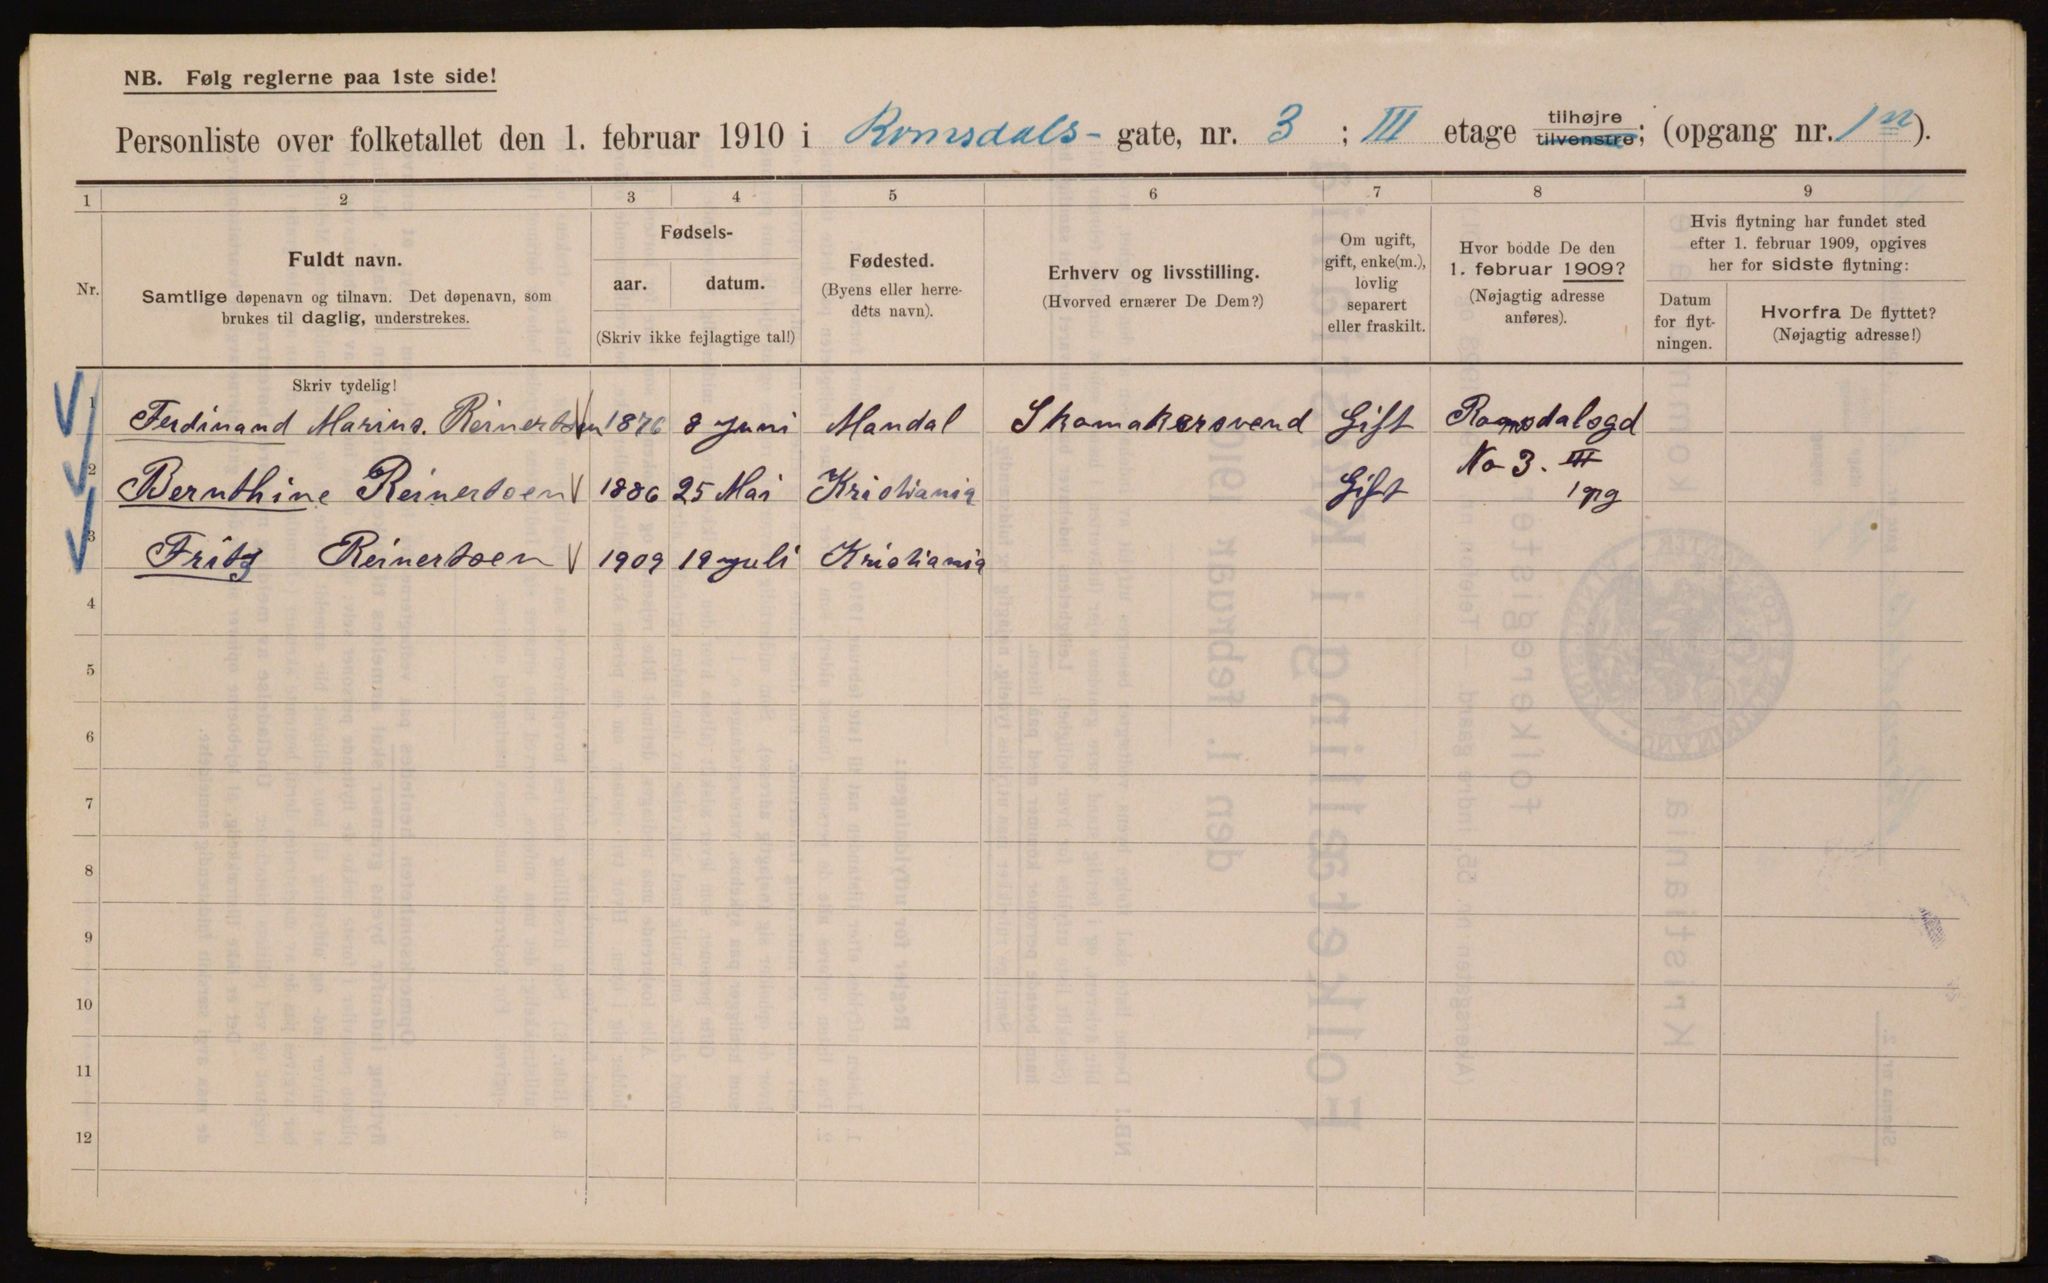 NB. Følg reglerne paa 1ste side!
Personliste over folketallet den 1. februar 1910 i Romsdals - gate, nr. 3 ; III etage tilhøjre tilvenstre; (opgang nr. 1 ).
1 2 3 4 5 6 7 8 9
Nr.
Fuldt navn.
Samtlige døpenavn og tilnavn. Det døpenavn, som
brukes til daglig, understrekes.
Fødsels-
aar. datum.
(Skriv ikke fejlagtige tal!)
Fødested.
(Byens eller herre-
dets navn).
Erhverv og livsstilling.
(Hvorved ernærer De Dem?)
Om ugift,
gift, enke(m.),
lovlig
separert
eller fraskilt.
Hvor bodde De den
1. februar 1909?
(Nøjagtig adresse
anføres).
Hvis flytning har fundet sted
efter 1. februar 1909, opgives
her for sidste flytning:
Datum
for flyt-
ningen.
Hvorfra De flyttet?
(Nøjagtig adresse!)
Skriv tydelig!
1 Ferdinand Marius. Reinertsen 1876 8 Juni Mandal Skomakersvend Gift Romsdalsgd
No 3. III
2 Bernthine Reinertsen 1886 25 Mai Kristiania Gift 1 opg
3 Fritz Reinertsen 1909 19 Juli Kristiania
4
5
6
7
8
9
10
11
12